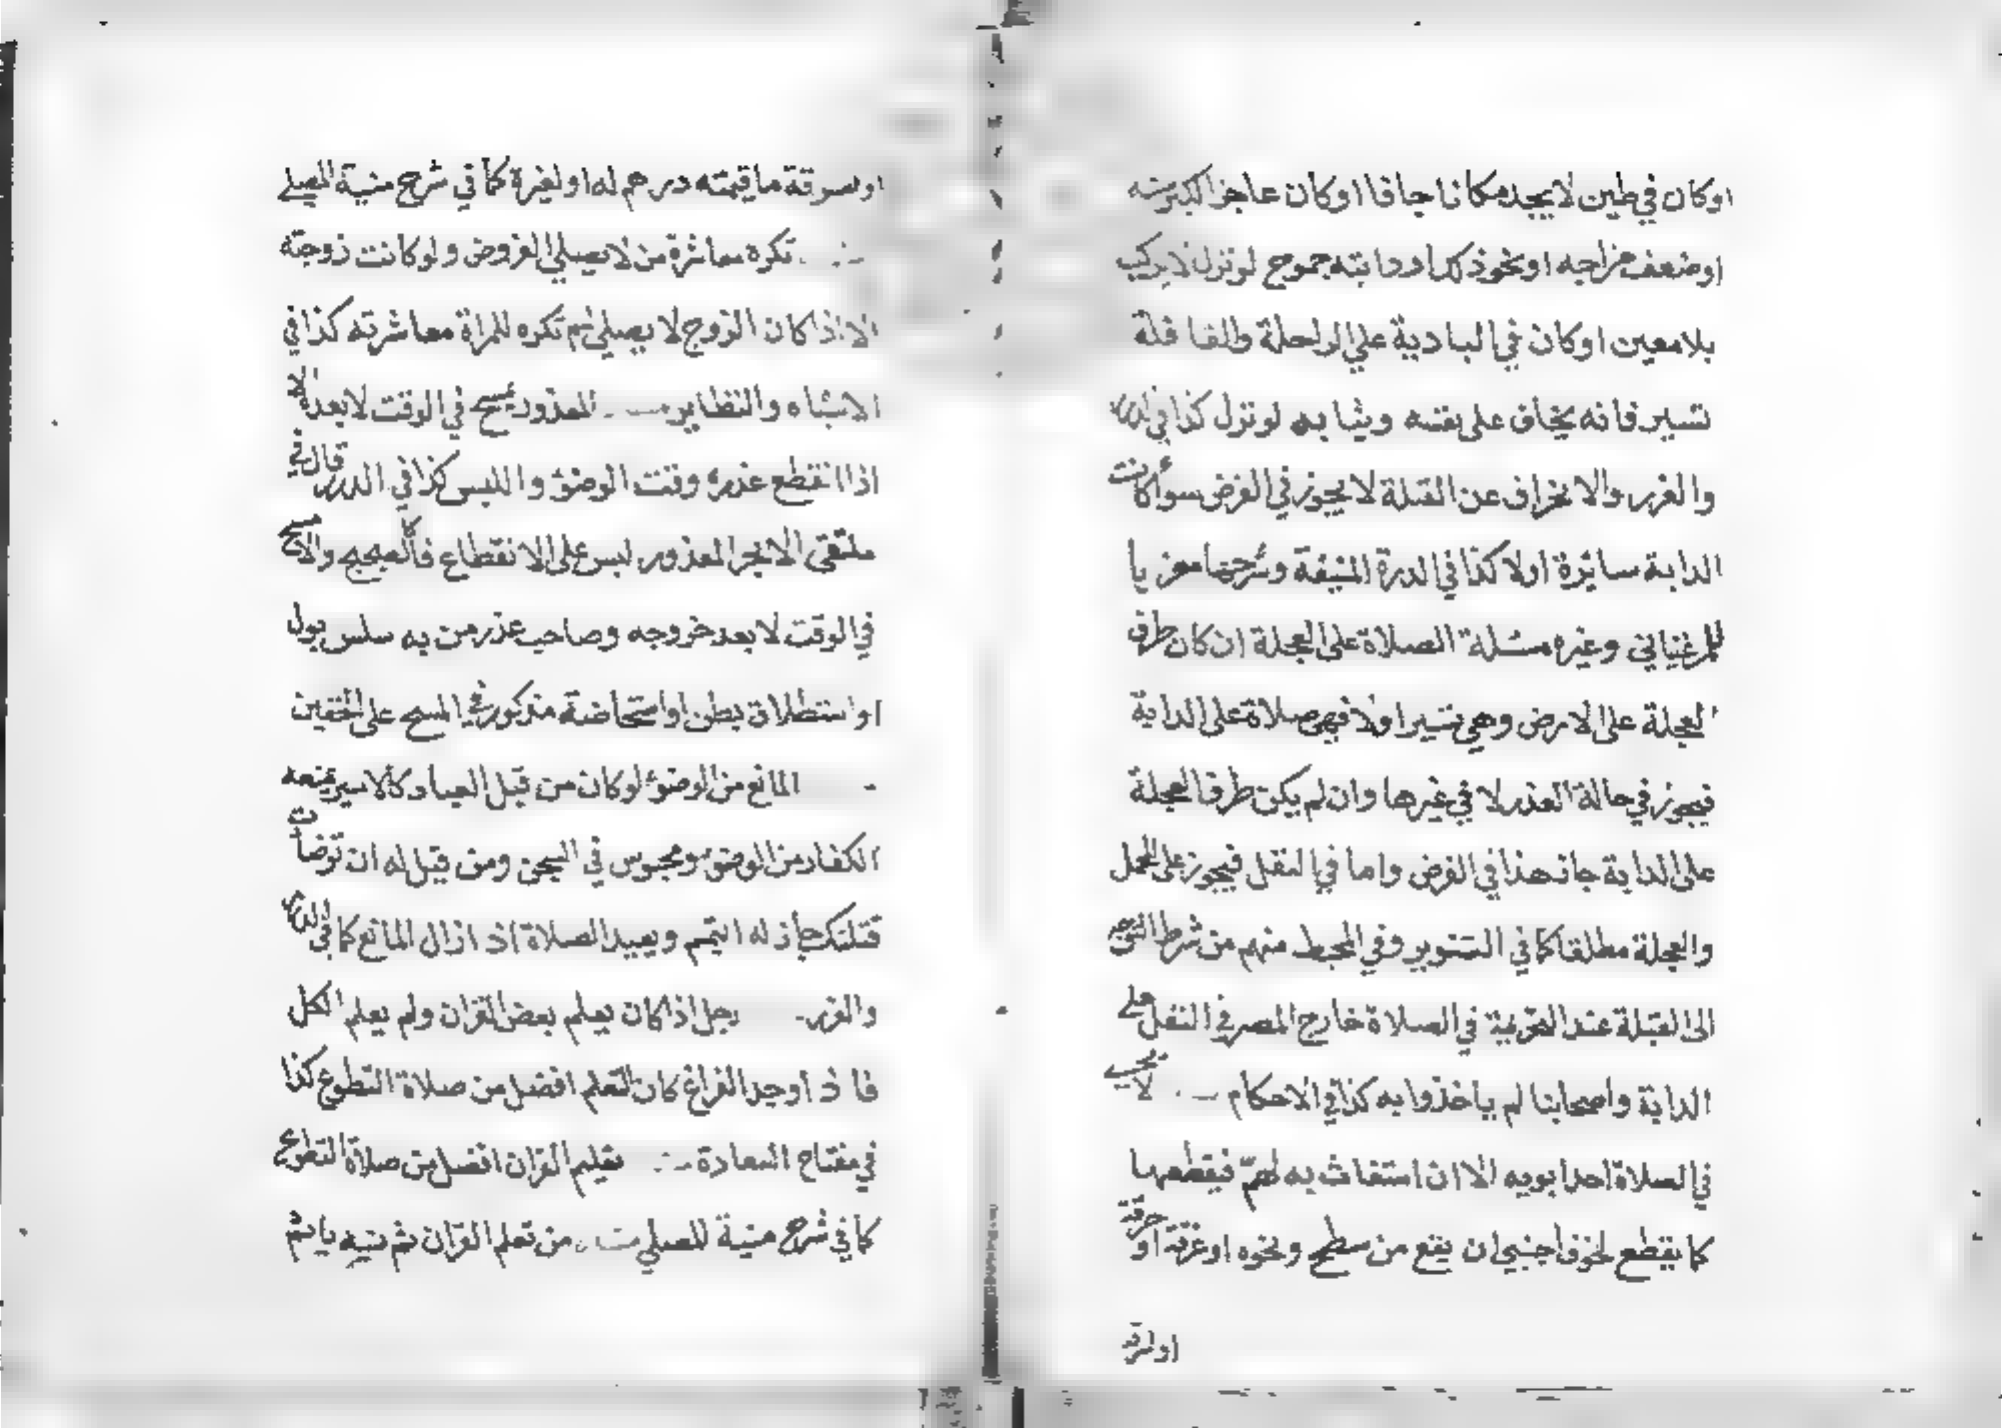 اوكان في طين لا يجد مكانا جافا اوكان عاجزا لكبر سنه
اوضعف مزاجه اونحو ذلك او دابته جموح لونزل لا يركب
بلا معين اوكان في البادية علي الراحلة والقافلة
تسير فانه يخاف على نفسه وثيابه لونزل كذا في الدرر
والغرر والانحراف عن القبلة لا يجوز في الفرض سوأ كانت
الدابة سائرة اولا كذا في الدرة المنيفة وشرحها معزيا
للمرغيناني وغيره مسئلة الصلاة على العجلة ان كان طرف
العجلة على الارض وهي تسير اولا فهي صلاة على الدابة
فيجوز في حالة العذر لا في غيرها وان لم يكن طرف العجلة
على الدابة جاز هذا في الفرض واما في النفل فيجوز على المحمل
والعجلة مطلقا كما في التنوير وفي المحيط منهم من شرط التوجه
الى القبلة عند التحريمة في الصلاة خارج المصر في النفل على
الدابة واصحابنا لم ياخذوا به كذا في الاحكام لا يجيب
في الصلاة احد ابويه الا ان استغاث به لهمّ فيقطعها
كما يقطع لخوف اجنبي ان يقع من سطح ونحوه او غرقة او حرقة
اولسرقة
اولسرقة ما قيمته درهم له اولغيره كما في شرح منية المصلي
تكره معاشرة من لا يصلي الفروض ولوكانت زوجته
الا اذا كان الزوج لا يصلي لم تكره للمراة معاشرته كذا في
الاشباه والنظاير المعذور يمسح في الوقت لا بعده الا
اذا انقطع عذره وقت الوضؤ واللبس كذا في الدرر قال في
ملتقى الابحر المعذور لبس على الانقطاع فكالصحيح والا مسح
في الوقت لا بعد خروجه وصاحب عذر من به سلس بول
اواستطلاق بطن اواستحاضة مذكور في المسح على الخفين
المانع من الوضؤ لوكان من قبل العباد كالاسير يمنعه
الكفار من الوضؤ ومحبوس في السجن ومن قيل له ان توضأت
قتلتك جاز له التيمم ويعيد الصلاة اذا زال المانع كما في الدرر
والغرر رجل اذا كان يعلم بعض القران ولم يعلم الكل
فاذا وجد الفراغ كان التعلم افضل من صلاة التطوع كذا
في مفتاح السعادة تعليم القران افضل من صلاة التطوع
كما في شرح منية المصلي من تعلم القران ثم نسيه ياثم